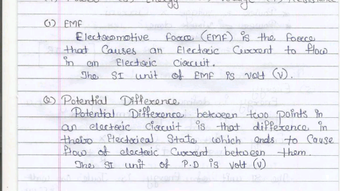 (i) EMF
Electromotive force (EMF) is the force
that Causes an Electric Current to flow
in an Electric Circuit.
The SI unit of EMF is volt (V).
(2) Potential Difference
Potential Difference between two points in
an electric Circuit is that difference in
Electrical State which ends to Cause
flow of electric Current between them
The SI unit of P.D is volt (V)